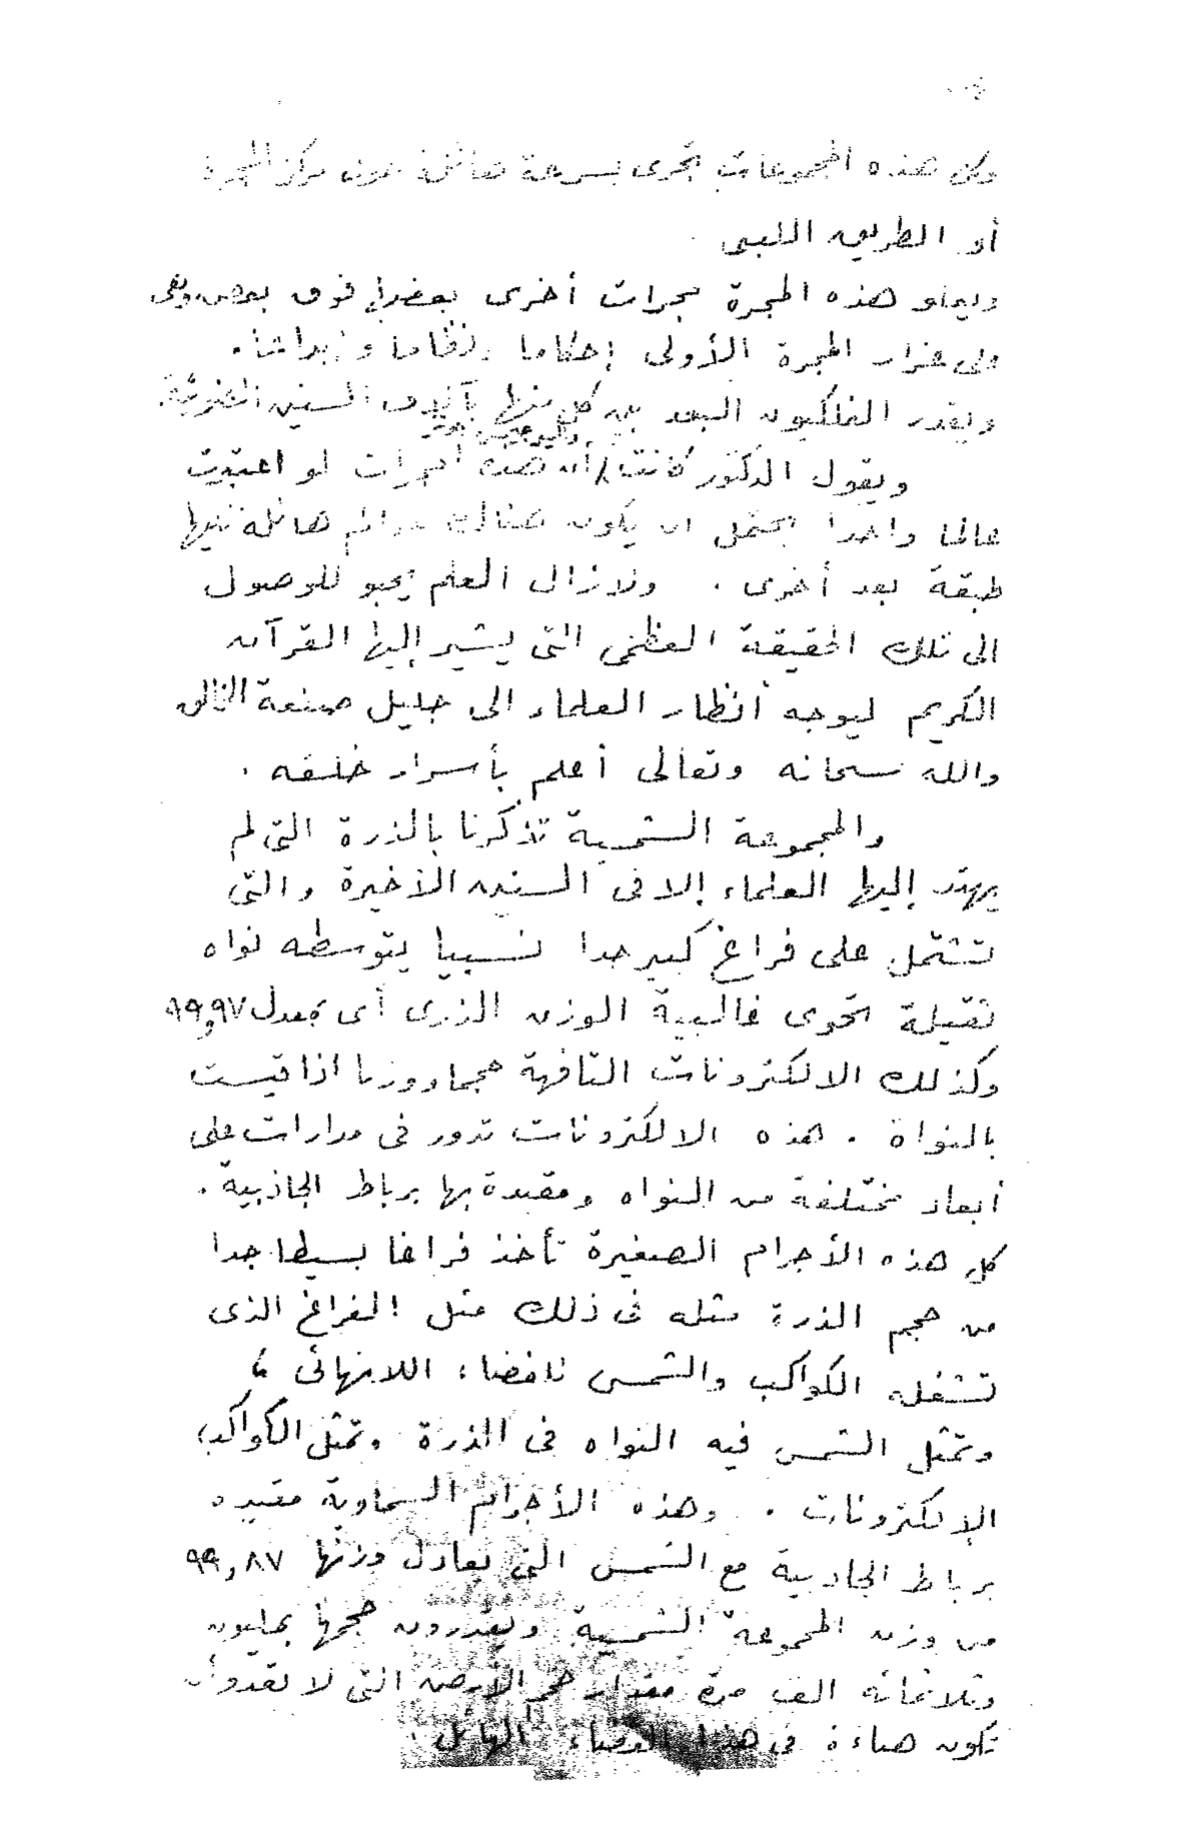 وكل هذه المجموعات تجرى بسرعة حول مركز المجرة
أو الطريق اللبنى
ويعلو هذه المجرة مجرات أخرى بعضها فوق بعض وهى
على غرار المجرة الأولى إحكاما ونظاما وإبداعا .
ويقدر الفلكيون البعد بين كل منها بآلاف السنين الضوئية .
ويقول الدكتور كانت أن هذه المجرات لو اعتبرت
عالما واحدا يحتمل ان يكون هناك عوالم هائلة تليها
طبقة بعد أخرى . ولازال العلم يحبو للوصول
الى تلك الحقيقة العظمى التى يشير إليها القرآن
الكريم ليوجه أنظار العلماء الى جليل صنعة الخالق
والله سبحانه وتعالى أعلم بأسرار خلقه .
والمجموعة الشمسية تذكرنا بالذرة التى لم
يهتد إليها العلماء إلا فى السنين الأخيرة والتى
تشتمل على فراغ كبير جدا نسبيا يتوسطه نواه
ثقيلة تحوى غالبية الوزن الذرى أى بمعدل ٩٩,٩٧
وكذلك الالكترونات التافهة حجما ووزنا اذا قيست
بالنواة . هذه الالكترونات تدور فى مدارات على
أبعاد مختلفة من النواه ومقيدة بها برباط الجاذبية .
كل هذه الأجرام الصغيرة تأخذ فراغا بسيطا جدا
من حجم الذرة مثله فى ذلك مثل الفراغ الذى
تشغله الكواكب والشمس بالفضاء اللانهائى ،
وتمثل الشمس فيه النواه فى الذرة وتمثل الكواكب
الإلكترونات . وهذه الأجرام السماوية مقيده
برباط الجاذبية مع الشمس التى يعادل وزنها ٩٩,٨٧
من وزن المجموعة الشمسية ويقدرون حجمها بمليون
وثلاثمائه الف مرة مقدار حجم الأرض التى لا تعدو أن
تكون هباءة فى هذا الفضاء الهائل .